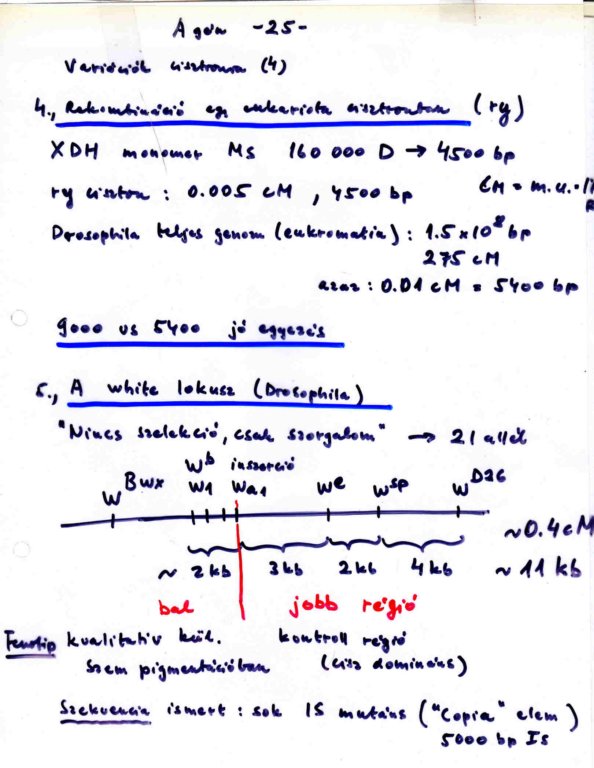 A gén -25-
Variációk cisztronra (4)
4., Rekombináció egy eukariota cisztronban (ry)
XDH monomer MS 160 000 D → 4500 bp
ry cisztron : 0.005 cM , 4500 bp
cM = m.u.
Drosophila teljes genom (eukromatin) : 1.5 x 10⁸ bp
275 cM
azaz : 0.01 cM = 5400 bp
9000 vs 5400 jó egyezés
5., A white lokusz (Drosophila)
"Nincs szelekció, csak szorgalom" → 21 allél
w^Bwx w^b w1 inszerció wa1 w^e w^sp w^D26
~0.4 cM
~ 2kb 3kb 2kb 4kb ~ 11 kb
bal jobb régió
Fenotip kvalitatív kül. kontroll régió
szem pigmentációban (cisz domináns)
Szekvencia ismert : sok IS mutáns ("Copia" elem)
5000 bp Is